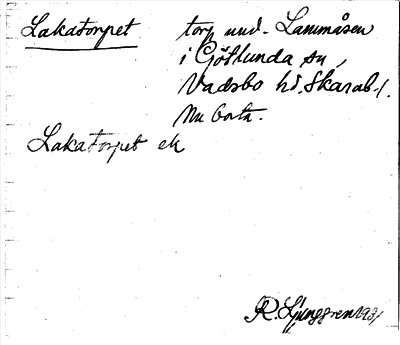 Lakatorpet torp und. Lammåsen
i Götlunda sn,
Vadsbo hd. Skarab. l.
Nu borta.
Lakatorpet ek
R. Ljunggren 1931